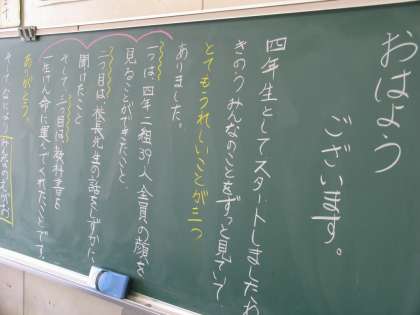 おはよう
ございます。
四年生としてスタートしましたね
きのうみんなのことをずっと見ていて
とてもうれしいことが三つ
ありました。
一つは、四年二組39人全員の顔を
見ることができたこと、
二つ目は、校長先生の話をしずかに
聞けたこと
そして、三つ目は教科書を
一生けん命に運んでくれたことです。
ありがとう。
みんなのえがお